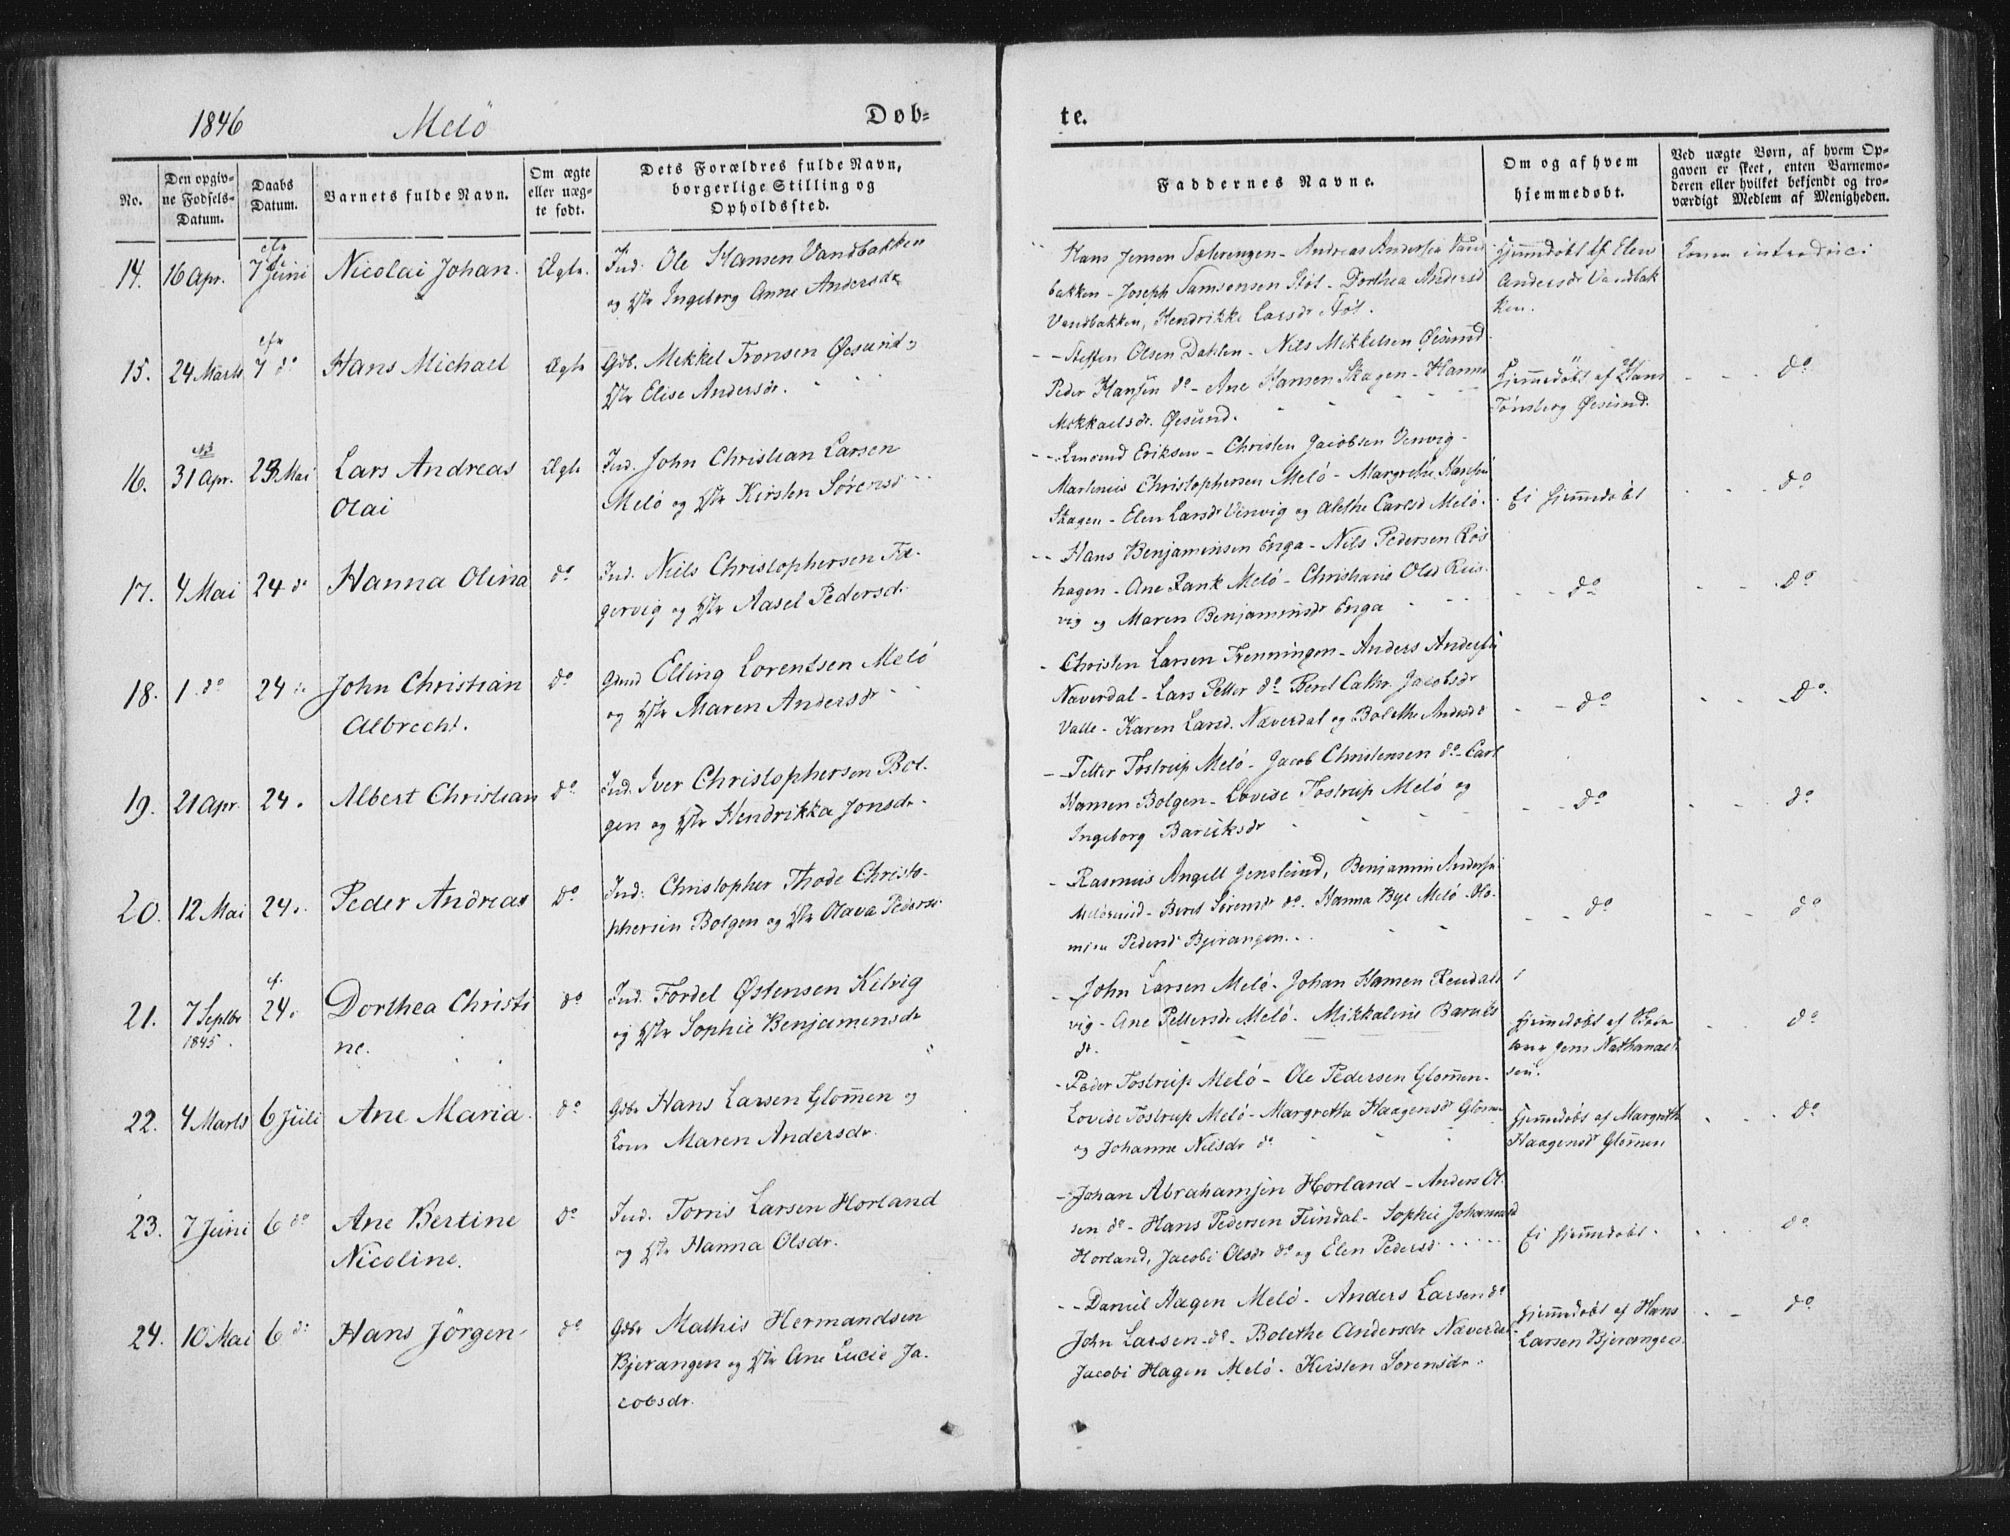 1846 Melö Døb-
te.
No.
Den opgiv-
ne Fødsels-
Datum.
Daabs
Datum.
Barnets fulde Navn.
Om ægte
eller uæg-
te født.
Dets Forældres fulde Navn,
borgerlige Stilling og
Opholdssted.
Faddernes Navne.
Om og af hvem
hjemmedøbt.
Ved uægte Børn, af hvem Op-
gaven er skeet, enten Barnemo-
deren eller hvilket bekjendt og tro-
værdigt Medlem af Menigheden.
14. 16 Apr. 7 Juni Nicolai Johan. Ægte. Ind. Ole Hansen Vandbakken
og Ingeborg Anne Andersdr
Hans Jensen - Andreas Andersen Vand
bakken - Joseph Samsonsen Støt - Dorthea Andersd
Vandbakken, Hendrikke Larsdr Støt.
Hjemmedøbt af Elen
Andersdr Vandbak
ken.
Konen introduc:
15. 24 Marts 7 do Hans Michael Ægte Gdb. Mikkel Tronsen Øesund og
Elise Andersdr.
- Steffen Olsen Dahlen - Nils Mikkelsen Øesund
Peder Hansen do - Ane Hansen Skagen - Hanna
Mikkaelsdr. Øesund.
Hjemmedøbt af Hans
Tønsberg Øesund.
do
16. 31 Apr. 23 Mai Lars Andreas
Olai
Ægte Ind. John Christian Larsen
Melö og Kirsten Sörensd
Eriksen - Christen Jacobsen Venvig -
Martenius Christophersen Melö - Margrethe Hansen
Skagen - Elen Larsdr Venvig og Alethe Carlsd Melö.
Ei hjemmedøbt
do
17. 4 Mai 24 do Hanna Olina do Ind. Niels Christophersen Fa-
gervig og Aasel Pedersd.
- Hans Benjaminsen Enga - Nils Pedersen Rös
hagen - Ane Rank Melö - Christiane Olsd Reis
vig og Maren Benjaminsdr Enga
do
do
18. 1 do 24 do John Christian
Albrecht.
do Gmd Elling Lorentsen Melö
og Maren Andersdr
- Christen Larsen Trenningen - Anders Andersen
Næverdal - Lars Petter do Beret Cathr. Jacobsdr
Valle - Karen Larsd. Næverdal og Bolethe Andersdr
do
Do.
19. 21 Apr 24. Albert Christian do Ind. Iver Christophersen Bol-
gen og Hendrikka Jonsdr.
- Petter Tostrup Melö - Jacob Christensen do - Carl
Hansen Bolgen - Lovise Tostrup Melö og
Ingeborg Baruksdr
do
do
20. 12 Mai 24. Peder Andreas do Ind. Christopher Thode Christo-
phersen Bolgen og Olava Pedersd.
- Rasmus Angell Jenslund, Benjamin Andersen
Melösund - Beret Sörensdr do. Hanna Bye Melö
Pedersd Bjerangen.
do
do
21. 7 Septbr
1845.
24. Dorthea Christi
ne.
do Ind. Fordel Østensen Kilvig
og Sophie Benjaminsdr
- John Larsen Melö - Johan Hansen
vig - Ane Pettersdr Melö - Mikkaline
dr.
Hjemmedøbt af
Jens Nathanael
sen.
do
22. 4 Marts 6 Juli Ane Maria. do Gdbr Hans Larsen Glommen og
Kone Maren Andersdr.
- Peder Tostrup Melö - Ole Pedersen Glommen.
Lovise Tostrup Melö - Margretha Haagensdr Glomm
og Johanne Nilsdr do
Hjemmedøbt af Margreth
Haagensdr Glommen
do
23. 7 Juni 6 do Ane Bertine
Nicoline.
do Ind. Torris Larsen Horland
og Hanna Olsdr.
- Johan Abrahamsen Horland - Anders Ol
sen do - Hans Pedersen Feindal - Sophie Johannsd
Horland, Jacobi Olsdr do og Elen Pedersd
Ei hjemmedøbt.
do
24. 10 Mai 6 do Hans Jörgen. do Gdbr Mathis Hermandsen
Bjerangen og Ane Lucie Ja-
cobsdr.
- Daniel Hagen Melö - Anders Larsen do
John Larsen do - Bolethe Andersdr Næverdal
Jacobi Hagen Melö - Kirsten Sorensdr.
Hjemmedøbt af Hans
Larsen Bjerangen.
do